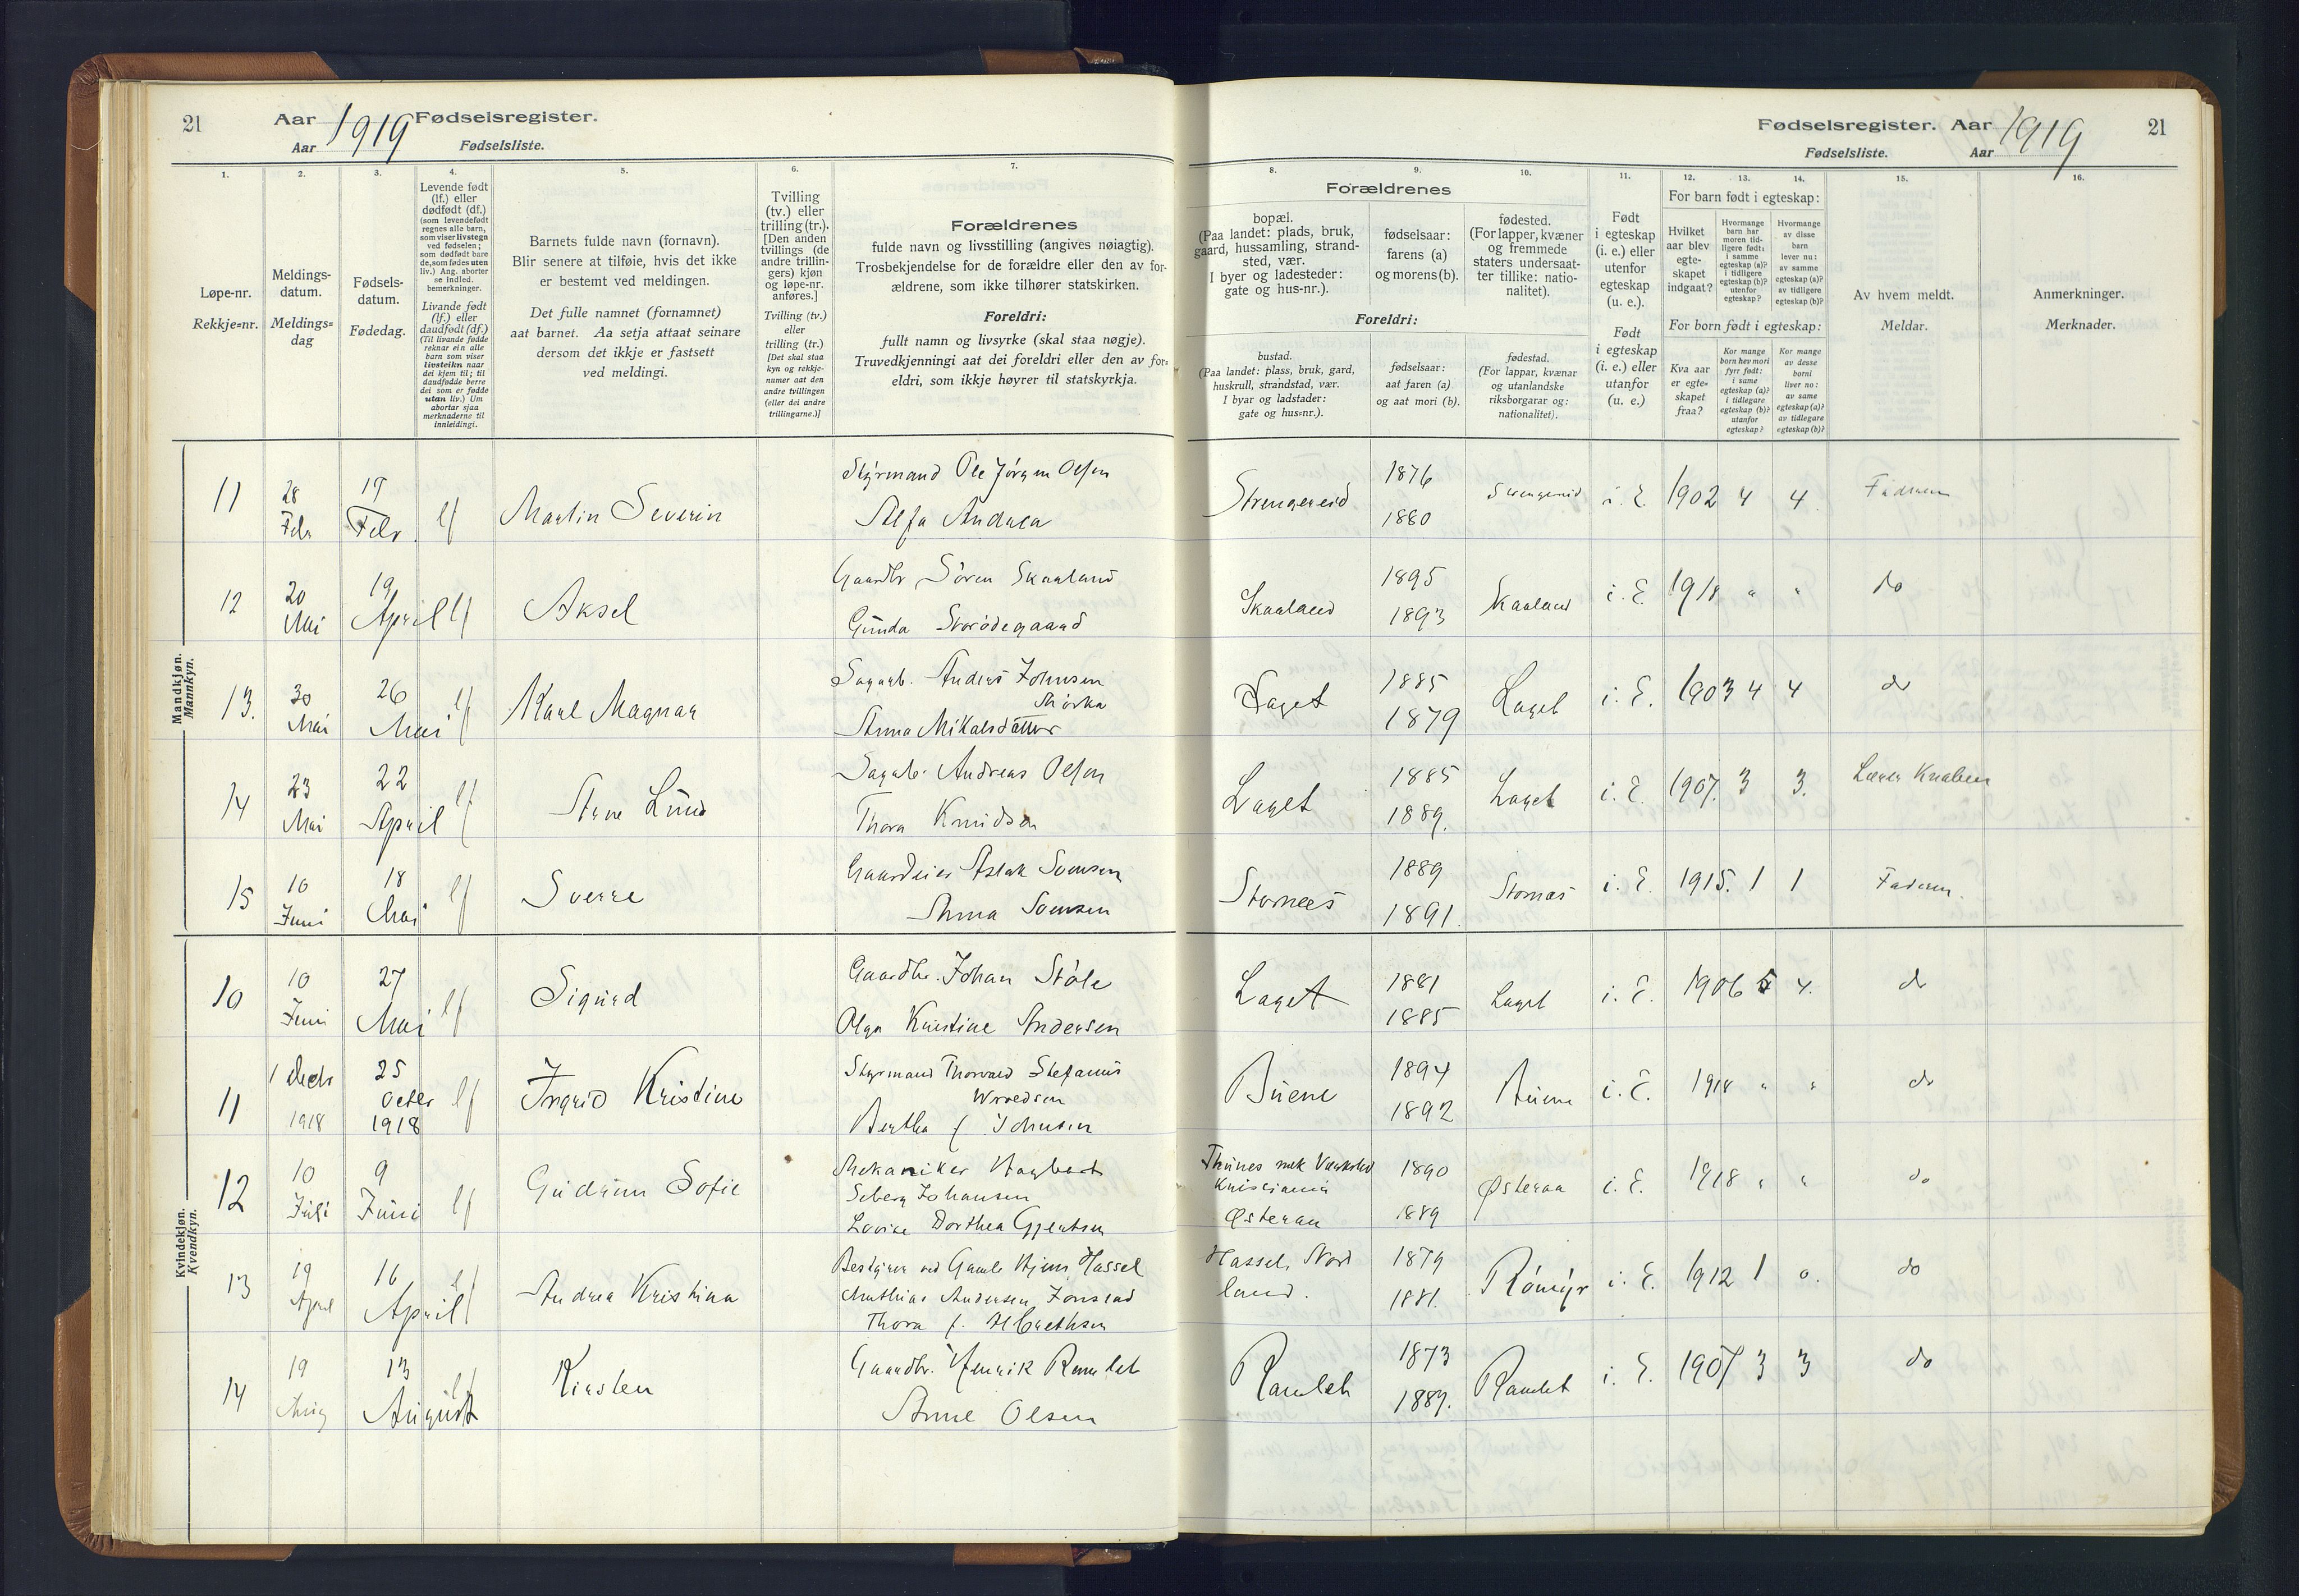 21
Aar 1919 Fødselsregister.
Aar Fødselsliste.
Fødselsregister. Aar 1919
Fødselsliste. Aar
21
1. 2. 3. 4. 5. 6. 7.
Løpe-nr.
Rekkje=nr.
Meldings-
datum.
Meldings=
dag
Fødsels-
datum.
Fødedag.
Levende født
(lf.) eller
dødfødt (df.)
(som levendefødt
regnes alle barn,
som viser livstegn
ved fødselen;
som dødfødt bare
de, som fødes uten
liv.) Ang. aborter
se indled.
bemerkninger.
Livande født
(lf.) eller
daudfødt (df.)
(Til livande fødde
reknar ein alle
barn som viser
livsteikn naar
dei kjem til; til
daudfødde berre
dei som er fødde
utan liv.) Um
abortar sjaa
merknaderne til
innleidingi.
Barnets fulde navn (fornavn).
Blir senere at tilføie, hvis det ikke
er bestemt ved meldingen.
Det fulle namnet (fornamnet)
aat barnet. Aa setja attaat seinare
dersom det ikkje er fastsett
ved meldingi.
Tvilling
(tv.) eller
trilling (tr.).
[Den anden
tvillings (de
andre trillin-
gers) kjøn
og løpe-nr.
anføres.]
Tvilling (tv.)
eller
trilling (tr.)
[Det skal staa
kyn og rekkje-
numer aat den
andre tvillingen
(eller dei andre
trillingarne.)]
Forældrenes
fulde navn og livsstilling (angives nøiagtig).
Trosbekjendelse for de forældre eller den av for-
ældrene, som ikke tilhører statskirken.
Foreldri:
fullt namn og livsyrke (skal staa nøgje).
Truvedkjenningi aat dei foreldri eller den av for=
eldri, som ikkje høyrer til statskyrkja.
8. 9. 10. 11. 12. 13. 14. 15. 16.
Forældrenes
bopæl.
(Paa landet: plads, bruk,
gaard, hussamling, strand-
sted, vær.
I byer og ladesteder:
gate og hus-nr.).
fødselsaar:
farens (a)
og morens (b).
fødested.
(For lapper, kvæner
og fremmede
staters undersaat-
ter tillike: natio-
nalitet).
Foreldri:
bustad.
(Paa landet: plass, bruk, gard,
huskrull, strandstad, vær.
I byar og ladstader:
gate og hus=nr.).
fødselsaar:
aat faren (a)
og aat mori (b).
fødestad.
(For lappar, kvænar
og utanlandske
riksborgarar og:
nationalitet).
Født
i egteskap
(i. e.) eller
utenfor
egteskap
(u. e.).
Født
i egteskap
(i. e.) eller
utanfor
(u. e.)
For barn født i egteskap:
Hvilket
aar blev
egte-
skapet
indgaat?
Hvormange
barn har
moren tid-
ligere født:
i samme
egteskap (a)?
i tidligere
egteskap (b)?
utenfor
egteskap?
Hvormange
av disse
barn
lever nu:
av samme
egteskap (a)?
av tidligere
egteskap (b)?
For born født i egteskap:
Kva aar
er egte=
skapet
fraa?
Kor mange
born hev mori
fyrr født:
i same
egteskap (a)?
i tidlegare
egteskap (b)?
utanfor
egteskap?
Kor mange
av desse
borni
liver no:
av same
egteskap (a)?
av tidlegare
egteskap (b)?
Av hvem meldt.
Meldar.
Anmerkninger.
Merknader.
Mandkjøn.
Mannkyn.
11 28 Febr 19 Febr lf Martin Severin
Styrmand Ole Jørgen Olsen
Alfa Andrea
Strengereid 1876 1880 Strengereid i. E. 1902 4 4 Faderen
12 20 Mai 19 April lf Aksel
Gaardbr Sören Skaaland
Gunda Storödegaard
Skaaland 1895 1893 Skaaland i. E. 1918 " " do
13. 30 Mai 26 Mai lf Karl Magnar
Sagarb. Anders Johnsen
Anna Mikalsdatter
Laget 1885 1879 Laget i. E. 1903 4 4 do
14 23 Mai 22 April lf Lund
Sagarb. Andreas Olsen
Thora Knudsen
Laget 1885 1889. Laget i. E. 1907. 3 3. Lærer Knaben
15 10 Juni 18 Mai lf Sverre
Gaardeier Aslak Somsen
Anna Somsen
Stornæs 1889 1891. Stornæs i. E. 1915. 1 1 Faderen.
Kvindekjøn.
Kvendkyn.
10 10 Juni 27 Mai lf Sigurd
Gaardbr. Johan Støle
Olga Kristine Andersen
Laget 1881 1885 Laget i. E. 1906 5 4. do
11 1 Decb 1918 25 Octbr 1918 lf Ingrid Kristine
Styrmand Thorvald Stefanus
Wroldsen
Bertha f. Johnsen
Buene 1894 1892 Buene i. E. 1918 " " do
12 10 Juli 9 Juni lf Gudrun Sofie
Mekaniker Hagbart
Seberg Johansen
Lovise Dorthea Gjertsen
Thunes mek Værksted
Kristiania
Østeraa
1890 1889 Østeraa i. E. 1918 " " do
13 19 April 16 April lf Andrea Kristina
Bestyrer ved Gamle Hjem Hassel
Mathias Andersen Fonstad
Thora f.
Hassel, Nord
land.
1879 1881. Römyr i. E. 1912 1 0. do
14 19 Aug 13 August lf Kirsten
Gaardbr. Henrik Ramlet
Anne Olsen
Ramlet 1873 1889. Ramlet i. E. 1907 3 3 do